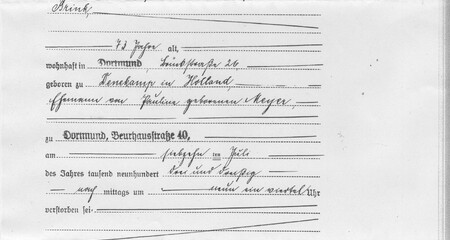 Brink,
73 Jahre alt,
wohnhaft in Dortmund Brinkstraße 26
geboren zu Denekamp in Holland,
Ehemann von Pauline geborenen Meyer
zu Dortmund, Beurhausstraße 40,
am siebzehn im Juli
des Jahres tausend neunhundert drei und dreißig
nach mittags um neun ein viertel Uhr
verstorben sei.